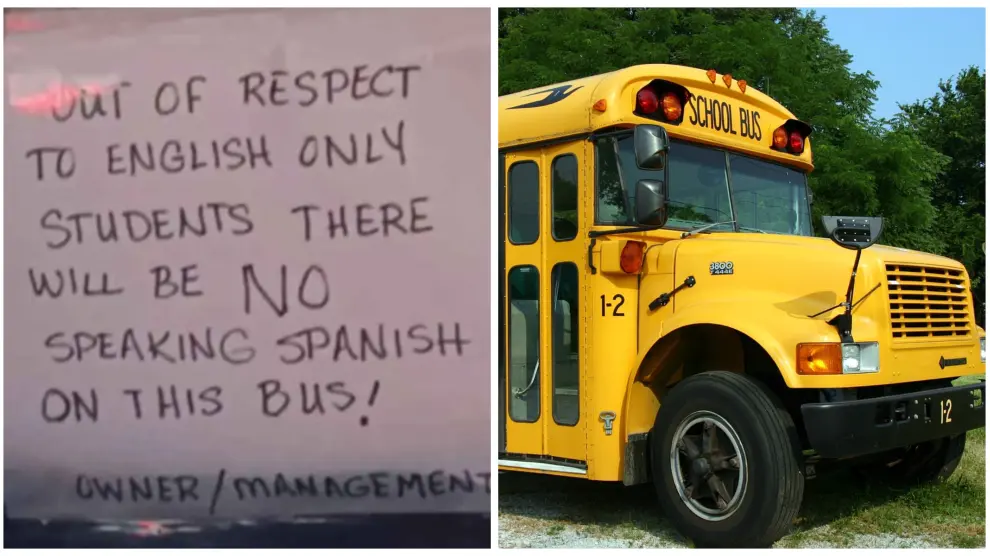 OUT OF RESPECT
TO ENGLISH ONLY
STUDENTS THERE
WILL BE NO
SPEAKING SPANISH
ON THIS BUS!
OWNER/MANAGEMENT
SCHOOL BUS
3800
1-2
1-2